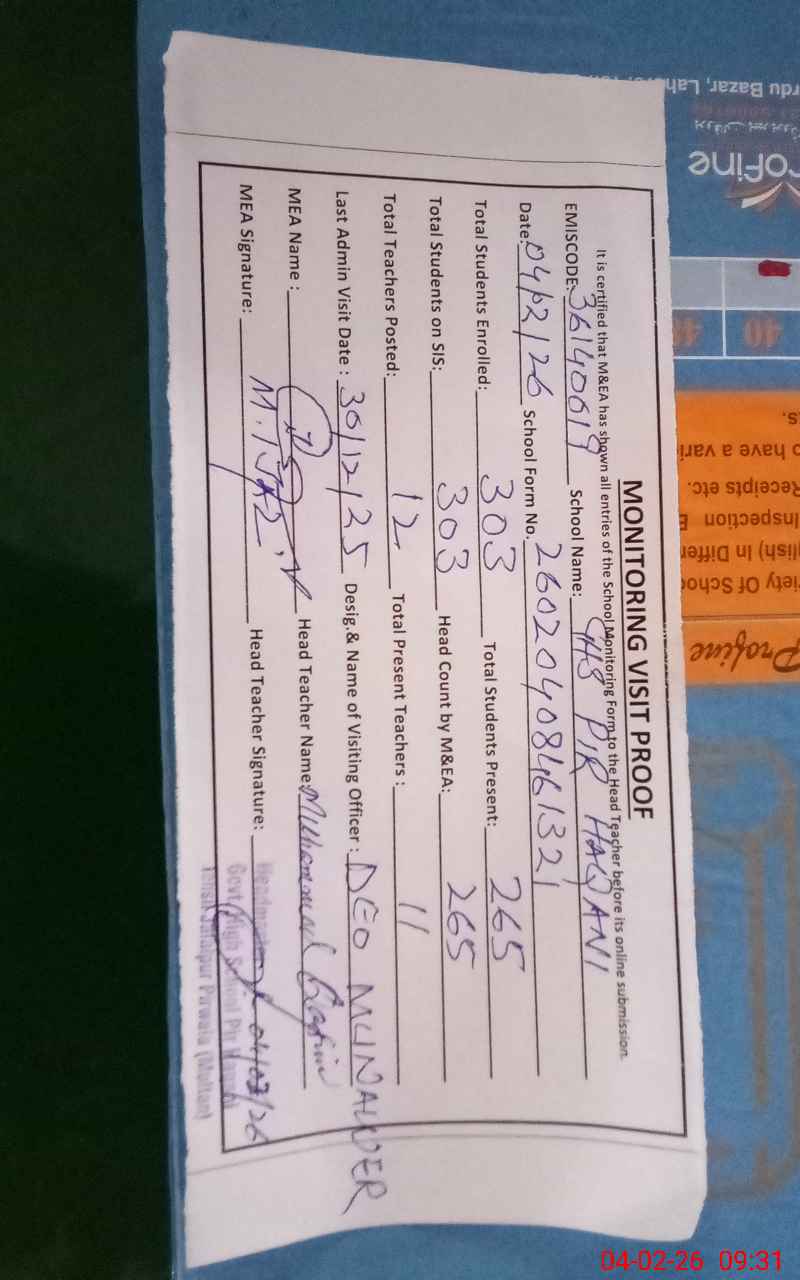 MONITORING VISIT PROOF
It is certified that M&EA has shown all entries of the School Monitoring Form to the Head Teacher before its online submission.
EMISCODE: 36140019 School Name: GHS PIR HAWANI
Date: 04/02/26 School Form No. 260204084632 1
Total Students Enrolled: 303 Total Students Present: 265
Total Students on SIS: 303 Head Count by M&EA: 265
Total Teachers Posted: 12 Total Present Teachers : 11
Last Admin Visit Date : 30/12/25 Desig.& Name of Visiting Officer : DEO MUNAWER
MEA Name : Head Teacher Name Muhammad
MEA Signature: Head Teacher Signature: 04/02/26
Govt. High School Pir
Jalalpur Pirwala (Multan)
rdu Bazar, Lah
roFine
40
48
s.
o have a vari
Receipts etc.
Inspection
lish) In Differ
iety Of Schoo
Profine
04-02-26 09:31